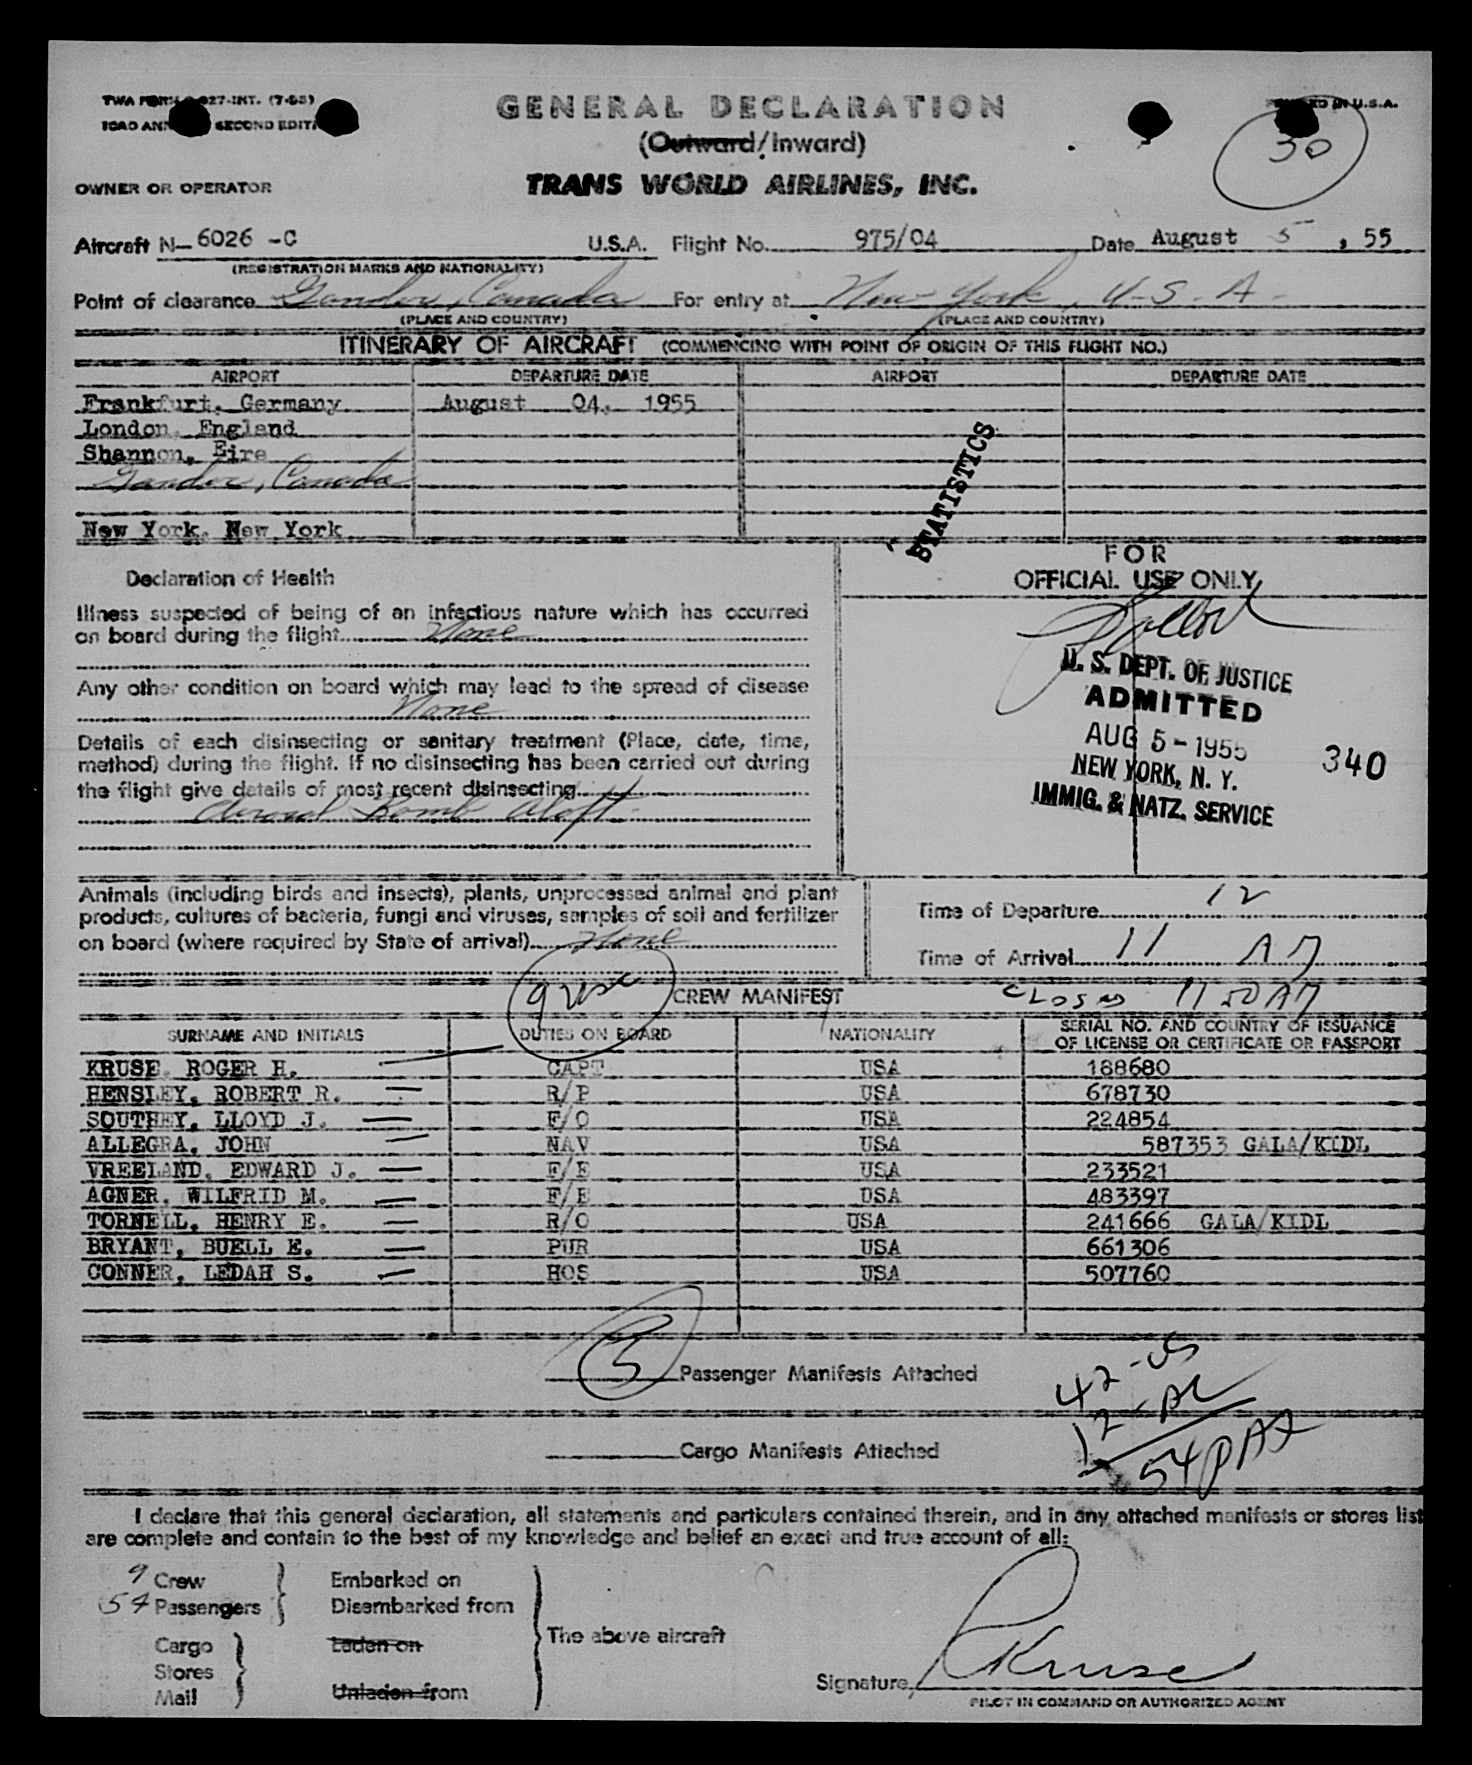 TWA FORM 027-INT. (7-53)
ICAO ANN SECOND EDIT
GENERAL DECLARATION
(Outward/Inward)
IN U.S.A.
30
OWNER OR OPERATOR
TRANS WORLD AIRLINES, INC.
Aircraft N- 6026 -C U.S.A. Flight No. 975/04 Date August 5, 55
(REGISTRATION MARKS AND NATIONALITY)
Point of clearance Gander, Canada For entry at New York, U-S-A-
(PLACE AND COUNTRY) (PLACE AND COUNTRY)
ITINERARY OF AIRCRAFT (COMMENCING WITH POINT OF ORIGIN OF THIS FLIGHT NO.)
AIRPORT DEPARTURE DATE AIRPORT DEPARTURE DATE
Frankfurt, Germany August 04, 1955
London, England
Shannon, Eire
Gander, Canada
New York, New York
STATISTICS
Declaration of Health
Illness suspected of being of an infectious nature which has occurred
on board during the flight None
Any other condition on board which may lead to the spread of disease
None
Details of each disinsecting or sanitary treatment (Place, date, time,
method) during the flight. If no disinsecting has been carried out during
the flight give details of most recent disinsecting
Aerosol Bomb Aloft
FOR
OFFICIAL USE ONLY
U. S. DEPT. OF JUSTICE
ADMITTED
AUG 5 - 1955
340
NEW YORK, N. Y.
IMMIG. & NATZ. SERVICE
Animals (including birds and insects), plants, unprocessed animal and plant
products, cultures of bacteria, fungi and viruses, samples of soil and fertilizer
on board (where required by State of arrival) None
Time of Departure 12
Time of Arrival 11 AM
9 usc
CREW MANIFEST
CLOSED 1150 AM
SURNAME AND INITIALS DUTIES ON BOARD NATIONALITY SERIAL NO. AND COUNTRY OF ISSUANCE
OF LICENSE OR CERTIFICATE OR PASSPORT
KRUSE, ROGER H. CAPT USA 188680
HENSLEY, ROBERT R. R/P USA 678730
SOUTHEY, LLOYD J. F/O USA 224854
ALLEGRA, JOHN NAV USA 587353 GALA/KIDL
VREELAND, EDWARD J. F/E USA 233521
AGNER, WILFRID M. F/E USA 483397
TORNELL, HENRY E. R/O USA 241666 GALA/KIDL
BRYANT, BUELL E. PUR USA 661306
CONNER, LEDAH S. HOS USA 507760
5 Passenger Manifests Attached
42-US
12-AL
54 PAX
Cargo Manifests Attached
I declare that this general declaration, all statements and particulars contained therein, and in any attached manifests or stores list
are complete and contain to the best of my knowledge and belief an exact and true account of all:
9 Crew
54 Passengers
Embarked on
Disembarked from
Cargo
Stores
Mail
Laden on
Unladen from
The above aircraft
Signature R Kruse
PILOT IN COMMAND OR AUTHORIZED AGENT